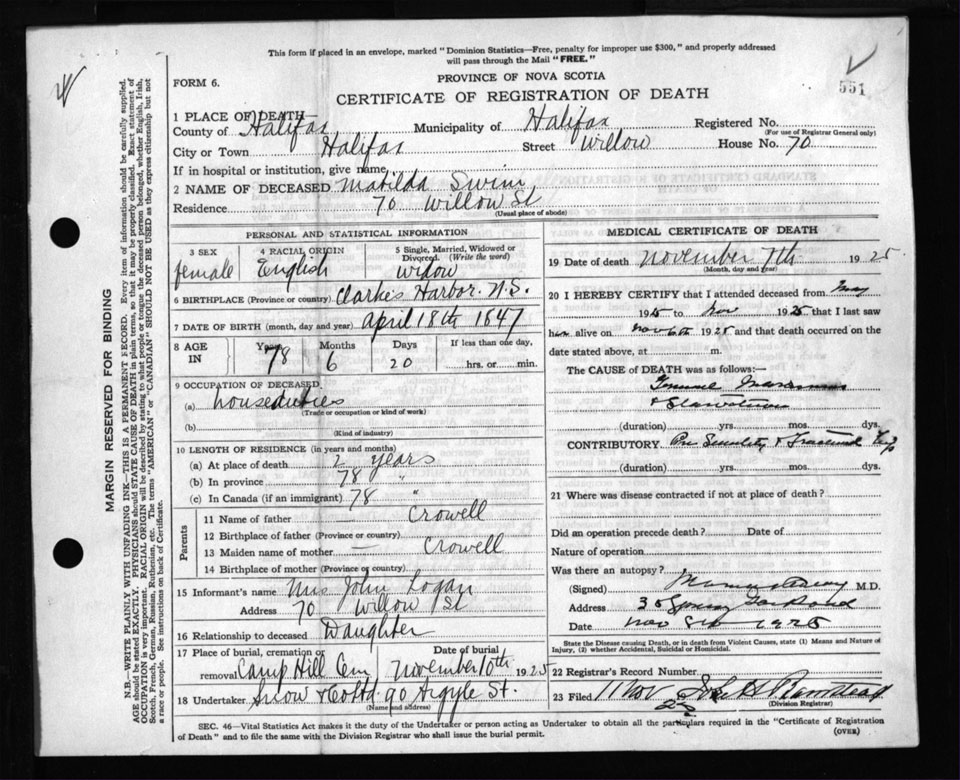 This form if placed in an envelope, marked "Dominion Statistics—Free, penalty for improper use $300," and properly addressed
will pass through the Mail "FREE."
FORM 6.
PROVINCE OF NOVA SCOTIA
551
CERTIFICATE OF REGISTRATION OF DEATH
1 PLACE OF DEATH
County of Halifax Municipality of Halifax Registered No.
(For use of Registrar General only)
City or Town Halifax Street Willow House No. 70
If in hospital or institution, give name
2 NAME OF DECEASED Matilda Swim
Residence 70 Willow St
(Usual place of abode)
PERSONAL AND STATISTICAL INFORMATION
3 SEX 4 RACIAL ORIGIN 5 Single, Married, Widowed or
Divorced. (Write the word)
female English widow
6 BIRTHPLACE (Province or country) Clarke's Harbor. N.S.
7 DATE OF BIRTH (month, day and year) April 18th 1847
8 AGE IN Years Months Days If less than one day,
78 6 20 hrs. or min.
9 OCCUPATION OF DECEASED
(a) houseduties
(Trade or occupation or kind of work)
(b)
(Kind of industry)
10 LENGTH OF RESIDENCE (in years and months)
(a) At place of death 2 years
(b) In province 78 "
(c) In Canada (if an immigrant) 78 "
Parents
11 Name of father — Crowell
12 Birthplace of father (Province or country)
13 Maiden name of mother — Crowell
14 Birthplace of mother (Province or country)
15 Informant's name Mrs John Logan
Address 70 Willow St
16 Relationship to deceased Daughter
17 Place of burial, cremation or Date of burial
removal Camp Hill Cem November 10th 1925
18 Undertaker Snow & Co Ltd. 90 Argyle St.
(Name and address)
MEDICAL CERTIFICATE OF DEATH
19 Date of death November 7th 1925
(Month, day and year)
20 I HEREBY CERTIFY that I attended deceased from May
1925 to Nov 1925 that I last saw
her alive on Nov 6th 1925 and that death occurred on the
date stated above, at m.
The CAUSE of DEATH was as follows:—
(duration) yrs. mos. dys.
CONTRIBUTORY Senility & Fractured Hip
(duration) yrs. mos. dys.
21 Where was disease contracted if not at place of death?
Did an operation precede death? Date of
Nature of operation
Was there an autopsy?
(Signed) M.D.
Address 35 Spring Garden Road
Date Nov 8th 1925
State the Disease causing Death, or in death from Violent Causes, state (1) Means and Nature of
Injury, (2) whether Accidental, Suicidal or Homicidal.
22 Registrar's Record Number
23 Filed 11 Nov
(Division Registrar)
SEC. 46—Vital Statistics Act makes it the duty of the Undertaker or person acting as Undertaker to obtain all the particulars required in the "Certificate of Registration
of Death" and to file the same with the Division Registrar who shall issue the burial permit.
(OVER)
MARGIN RESERVED FOR BINDING
N.B.—WRITE PLAINLY WITH UNFADING INK—THIS IS A PERMANENT RECORD. Every item of information should be carefully supplied.
AGE should be stated EXACTLY. PHYSICIANS should STATE CAUSE OF DEATH in plain terms, so that it may be properly classified. Exact statement of
OCCUPATION is very important. RACIAL ORIGIN will be described by stating to what people or tongue the deceased person belonged, whether English, Irish,
Scotch, French, German, Russian, Ruthenian, etc. The terms "AMERICAN" or "CANADIAN" SHOULD NOT BE USED as they express citizenship but not
a race or people. See instructions on back of Certificate.